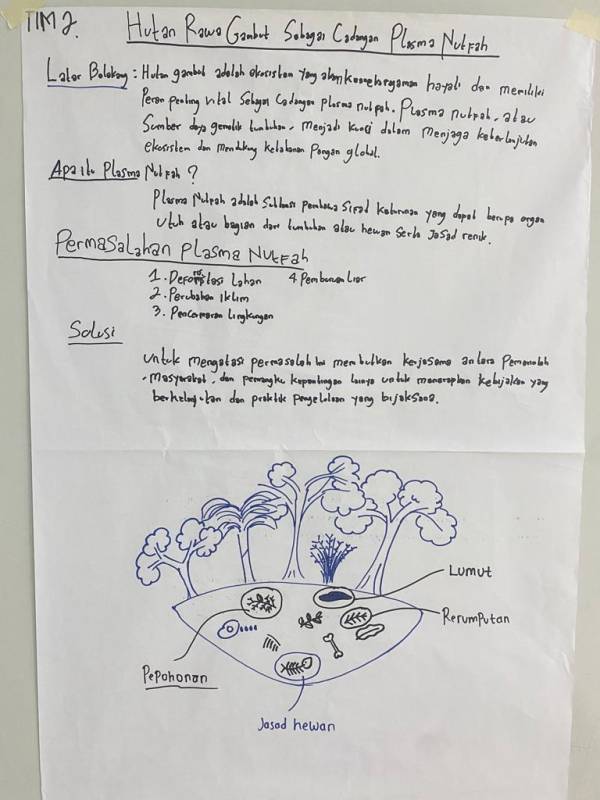 TIM 2.
Hutan Rawa Gambut Sebagai Cadangan Plasma Nutfah
Latar Belakang : Hutan gambut adalah ekosistem yang akan keanekaragaman hayati dan memiliki
Peran penting vital Sebagai Cadangan plasma nutfah. Plasma nutfah, atau
Sumber daya genetik tumbuhan, Menjadi Kunci dalam Menjaga keberlanjutan
ekosistem dan Mendukung Ketahanan Pangan global.
Apa itu Plasma Nutfah ?
Plasma Nutfah adalah Substansi Pembawa Sifat Keturunan yang dapat berupa organ
Utuh atau bagian dari tumbuhan atau hewan Serta Jasad renik.
Permasalahan Plasma Nutfah
1. Deforestasi Lahan 4 Pemburuan Liar
2. Perubahan Iklim
3. Pencemaran Lingkungan
Solusi
Untuk mengatasi permasalah ini membutkan kerjasama antara Pemerintah
, Masyarakat, dan pemangku kepentingan lainya untuk menerapkan kebijakan yang
berkelanjutan dan praktik pengelolaan yang bijaksana.
Lumut
Rerumputan
Pepohonan
Jasad hewan